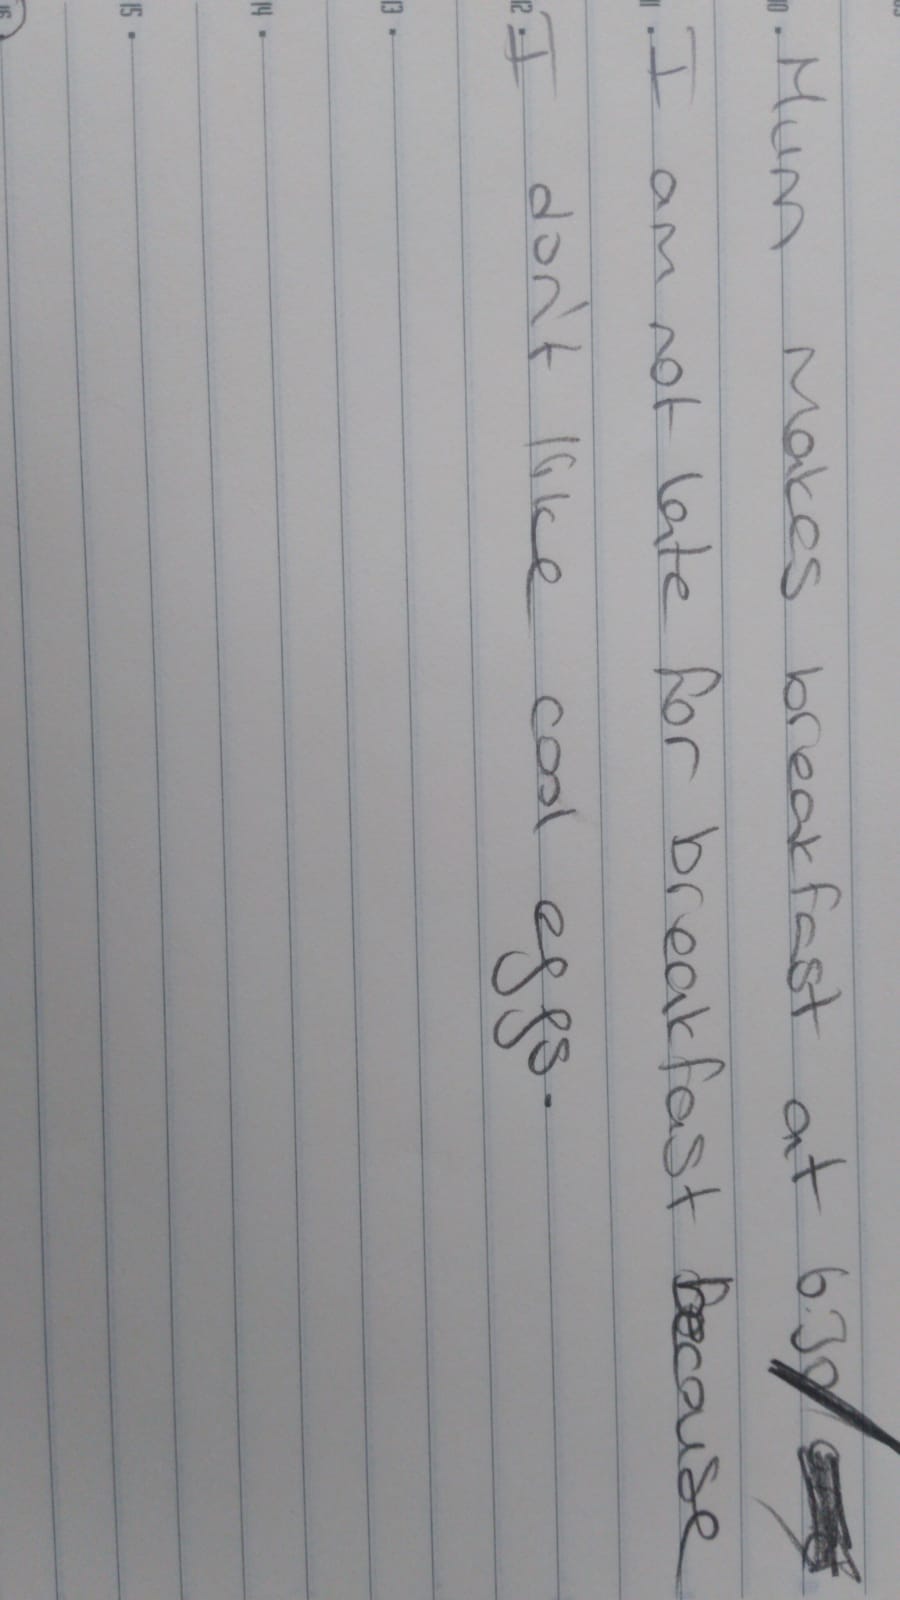 10 . Mum makes breakfast at 6.30
11 . I am not late for breakfast because
12 . I don't like cool eggs.
13 .
14 .
15 .
16